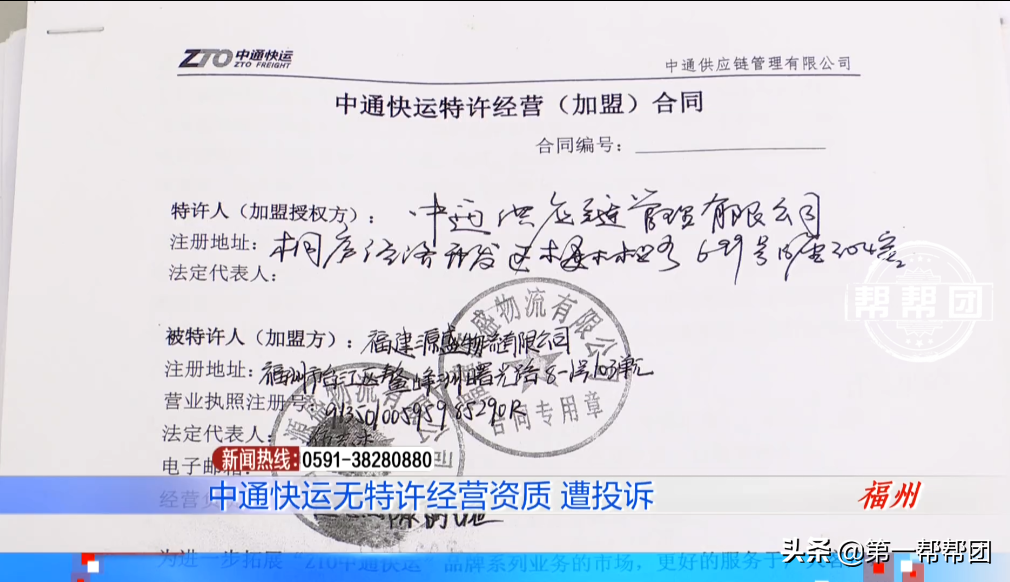 ZTO 中通快运
ZTO FREIGHT
中通供应链管理有限公司
中通快运特许经营（加盟）合同
合同编号：
特许人（加盟授权方）：中通供应链管理有限公司
注册地址：桐庐经济开发区 699号 304室
法定代表人：
被特许人（加盟方）：福建源盛物流有限公司
注册地址：福州市台江区鳌峰洲曙光路8-1号103单元
营业执照注册号：91350100595985290R
法定代表人：
电子邮箱
盛物流有限公
合同专用章
源盛物流有限公司
帮帮团
新闻热线：0591-38280880
中通快运无特许经营资质 遭投诉
福州
经营
为进一步拓展“ZTO中通快运”品牌系列业务的市场，更好的服务于
头条 @第一帮帮团